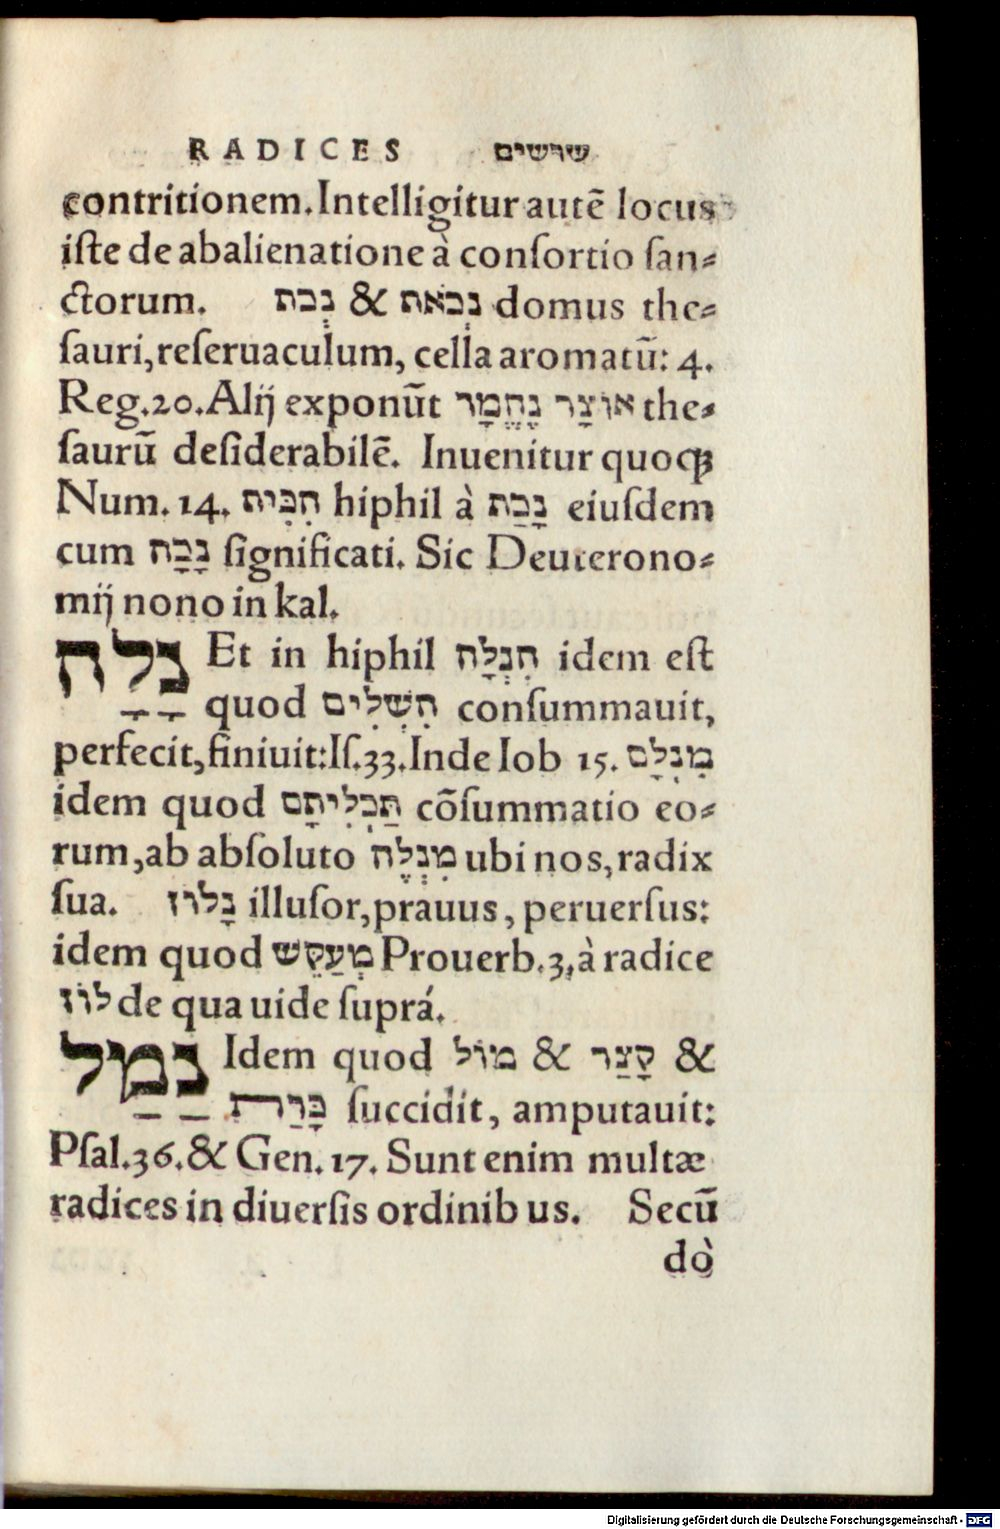 RADICES שרשים
contritionem. Intelligitur autē locus
iſte de abalienatione à conſortio ſan-
ctorum. נְכֹאת & נְכֹת domus the-
ſauri, reſeruaculum, cella aromatū: 4.
Reg. 20. Alij exponūt אוֹצָר נֶחֱמָד the-
ſaurū deſiderabilē. Inuenitur quoqꝫ
Num. 14. הִכִּית hiphil à נָכַת eiuſdem
cum נָכָה ſignificati. Sic Deuterono-
mij nono in kal.
נָלָה Et in hiphil הִנְלָה idem eſt
quod הִשְׁלִים conſummauit,
perfecit, finiuit: Iſ. 33. Inde Iob 15. מִנְלָם
idem quod תַּכְלִיתָם cōſummatio eo-
rum, ab abſoluto מִנְלֶה ubi nos, radix
ſua. נָלוֹז illuſor, prauus, peruerſus:
idem quod מְעַקֵּשׁ Prouerb. 3, à radice
לוּז de qua uide ſuprá.
נָמַל Idem quod מוּל & קָצַר &
כָּרַת ſuccidit, amputauit:
Pſal. 36. & Gen. 17. Sunt enim multæ
radices in diuerſis ordinib us. Secū
dò
Digitalisierung gefördert durch die Deutsche Forschungsgemeinschaft - DFG